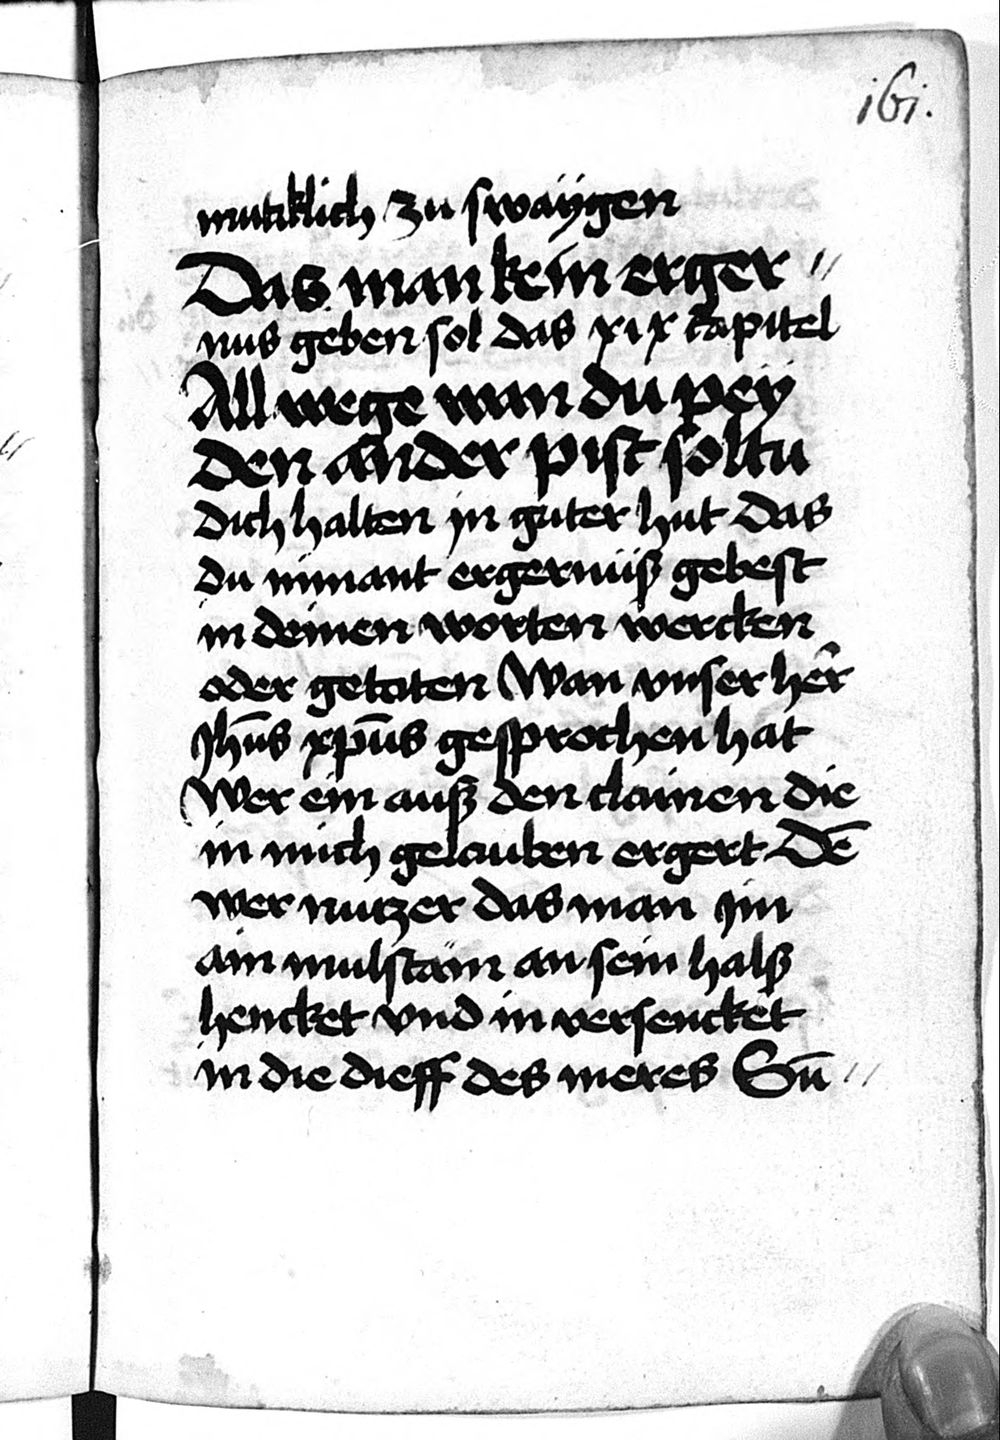 161.
mutzklich zu swaÿgen
Das man kein erger //
nus geben sol das xix capitel
All wege wan du peÿ
den ander pist soltu
dich halten in guter hut Das
du nimant ergernüß gebest
in deinen worten wercken
oder getaten Wan vnser her̄
Jhūs xpūs gesprochen hat
Wer ein auß den clainen die
in mich gelauben ergert Dē
wer nutzer das man im
ain mulstain an sein halß
hencket vnd in versencket
in die dieff des meres Sū //